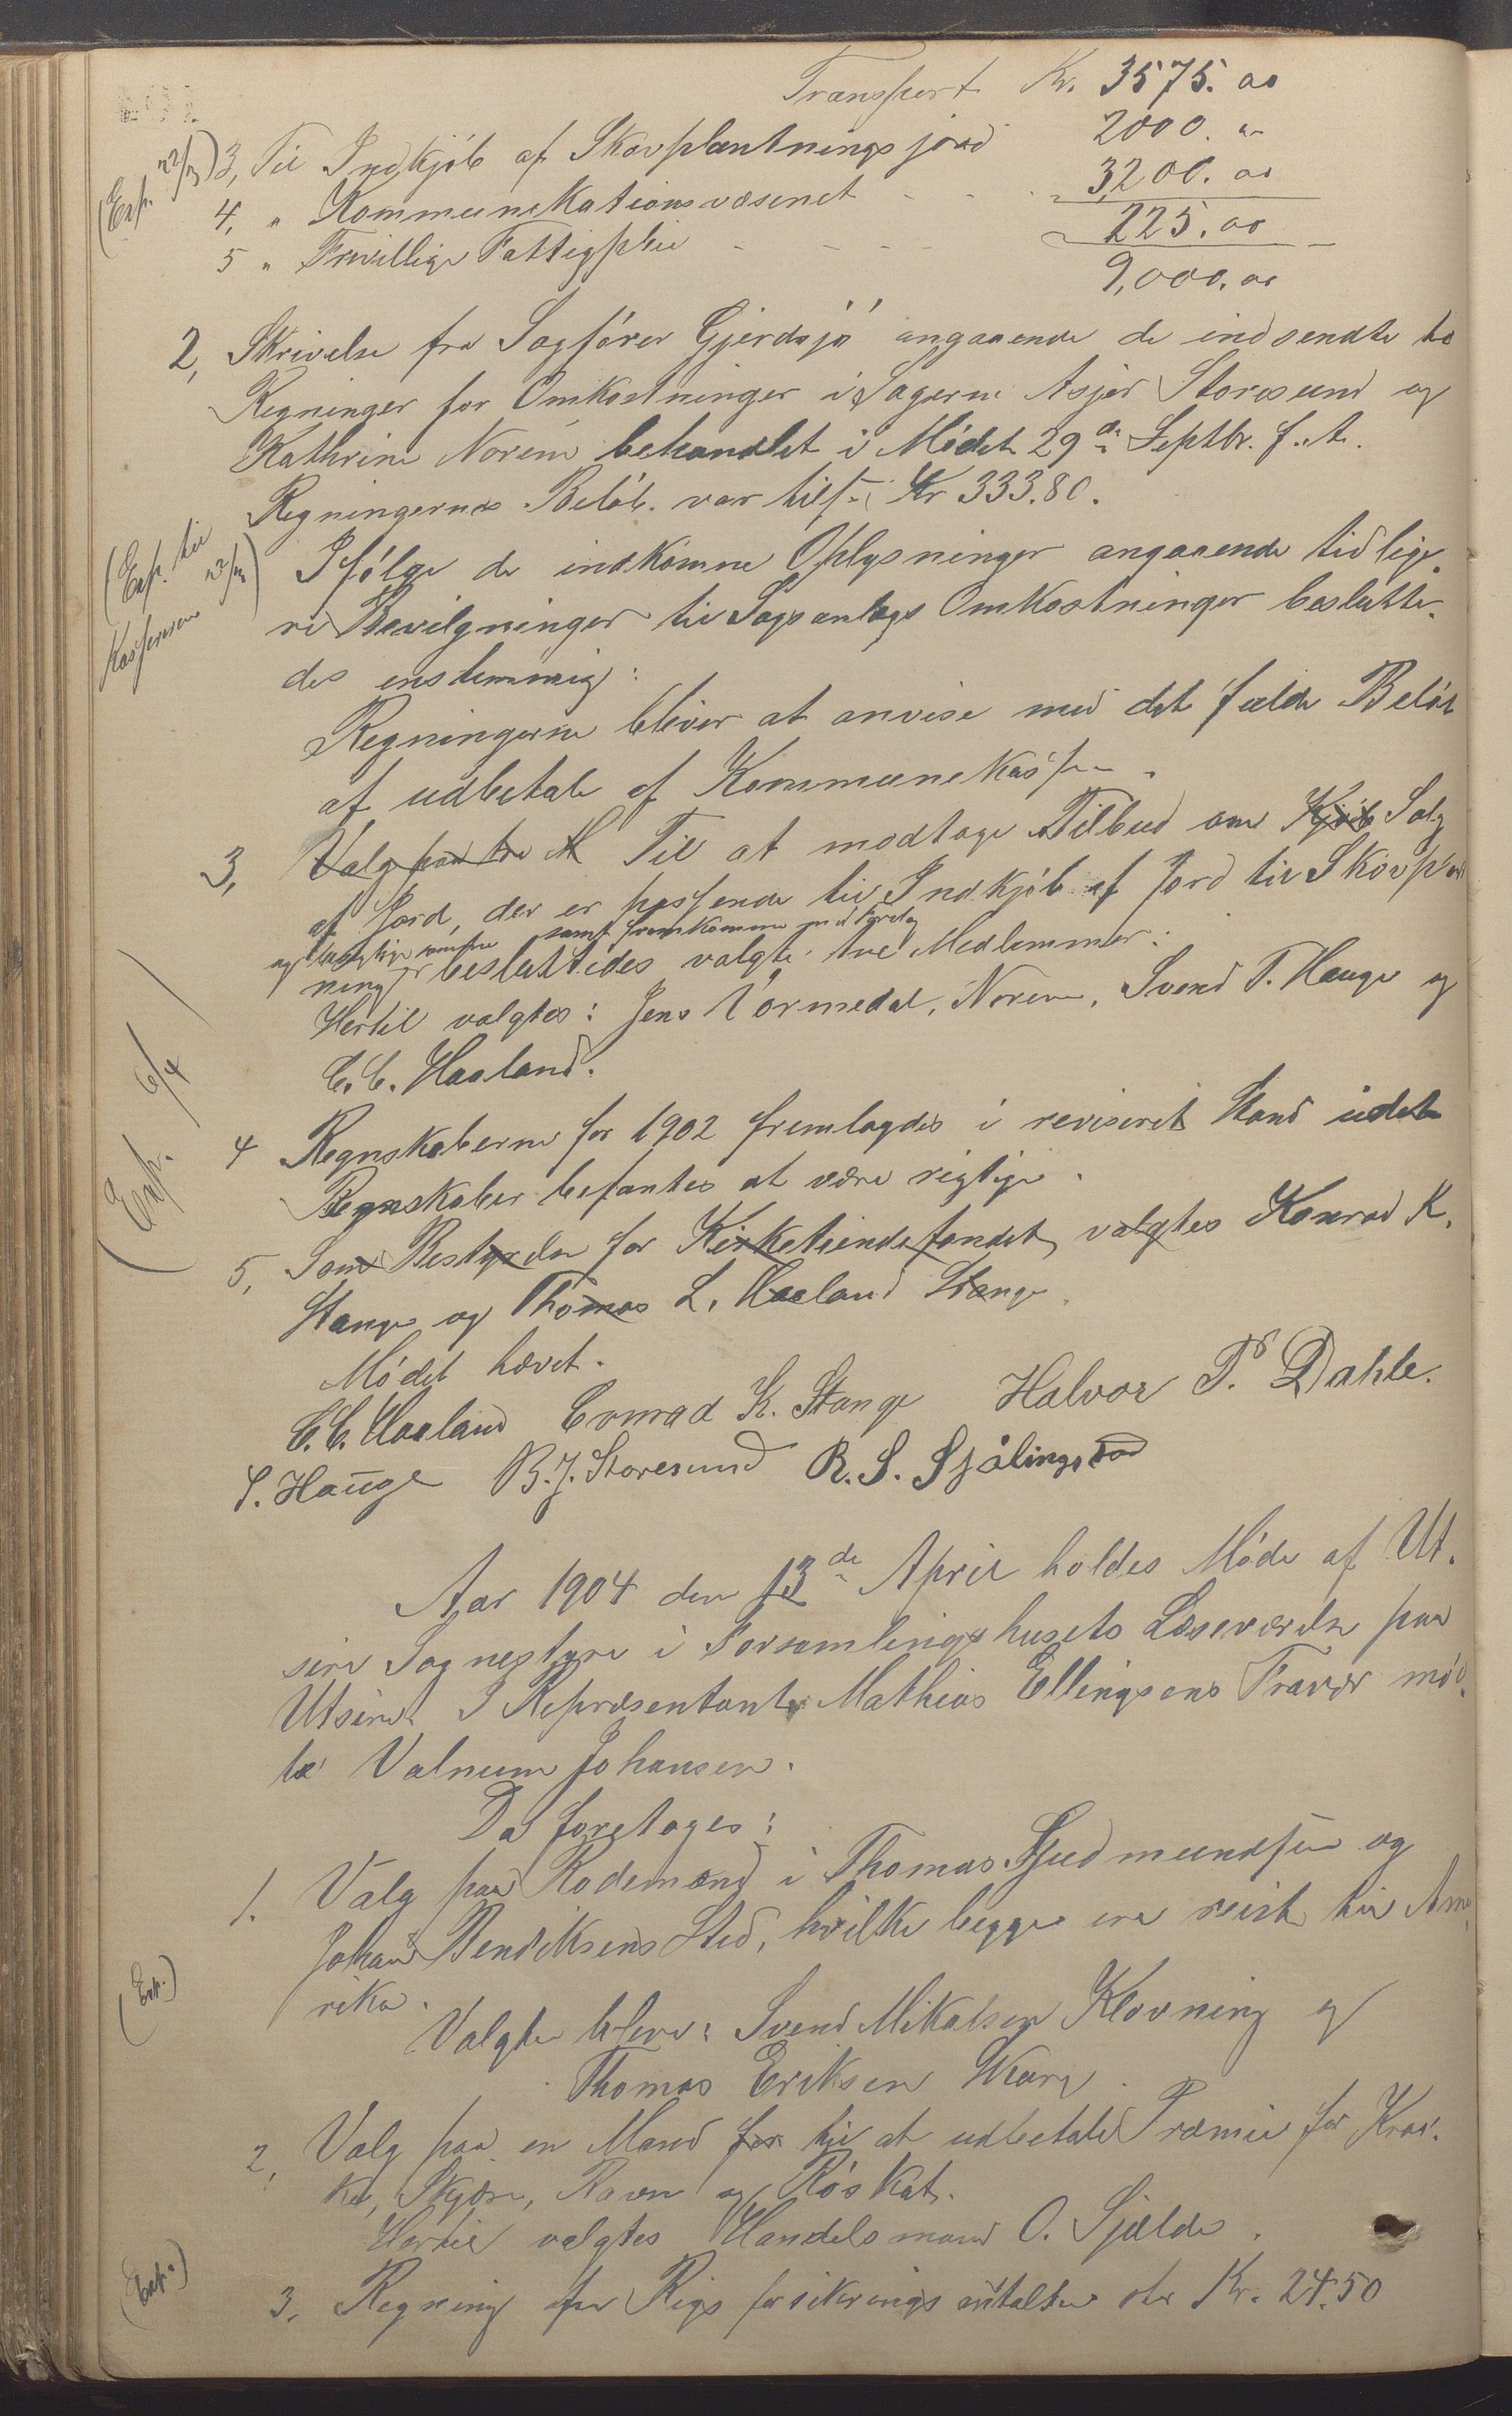 Transport Kr. 3575.00
(Exp. 22/3) 3, Til Indkjöb af Skovplantningsjord 2000. "
4, " Kommunekationsvæsenet - - 3,200.00
5 " Frivillige Fattigpleie - - - - 225.00
9,000.00
2, Skrivelse fra Sagförer Gjerdsjö angaaende de indsendte to
Regninger for Omkostninger i Sagerne Asjer Storesund og
Kathrine Noreim behandlet i Mödet 29de Septbr. f. A.
Regningernes Belöb var tils. Kr 333.80.
(Exp. til
Kassereren 22/3)
Ifölge de indkomne Oplysninger angaaende tidlige-
re Bevilgninger til Sagsanlægs Omkostninger beslutte-
des enstemmig:
Regningerne bliver at anvise med det fulde Belöb
af udbetale af Kommunekassen.
3, Valg paa tre M Til at modtage Tilbud om Kjöb Salg
af Jord, der er passende til Indkjöb af Jord til Skovplant
samt fremkomme med Forslag
ning besluttedes valgte tre Medlemmer:
Hertil valgtes: Jens Vormedal, Noreim, Svend T. Hauge og
C. C. Haaland.
(Exp. 6/4)
4 Regnskaberne for 1902 fremlagdes i revideret Stand
Regnskaber befantes at være rigtige.
5, Som Bestyrelse for Kirketiendefondet valgtes Konrad K.
Stange og Thomas L. Haaland Stange
Mödet hævet.
C. C. Haaland Conrad K. Stange Halvor P. Dahle.
S. Hauge B. J. Storesund R. S. Sjålingstad
Aar 1904 den 13de April holdes Möde af Ut-
sire Sognestyre i Forsamlingshusets Læseværelse paa
Utsire. I Repræsentant Mathias Ellingsens Fravær möd-
te Valnum Johansen.
Da foretoges:
1. Valg paa Rodemænd i Thomas Gudmundsen og
Johan Bendiksens Sted, hvilke begge ere reist til Ame-
rika.
(Exp.)
Valgte bleve: Svend Mikalsen Klovning og
Thomas Eriksen Skare.
2, Valg paa en Mand for til at udbetale Præmie for Kraa-
ke, Skjære, Ravn og Röskat.
Hertil valgtes Handelsmand O. Sjælde.
(Exp.)
3, Regning fra Rigsforsikringsanstalten stor Kr. 24.50